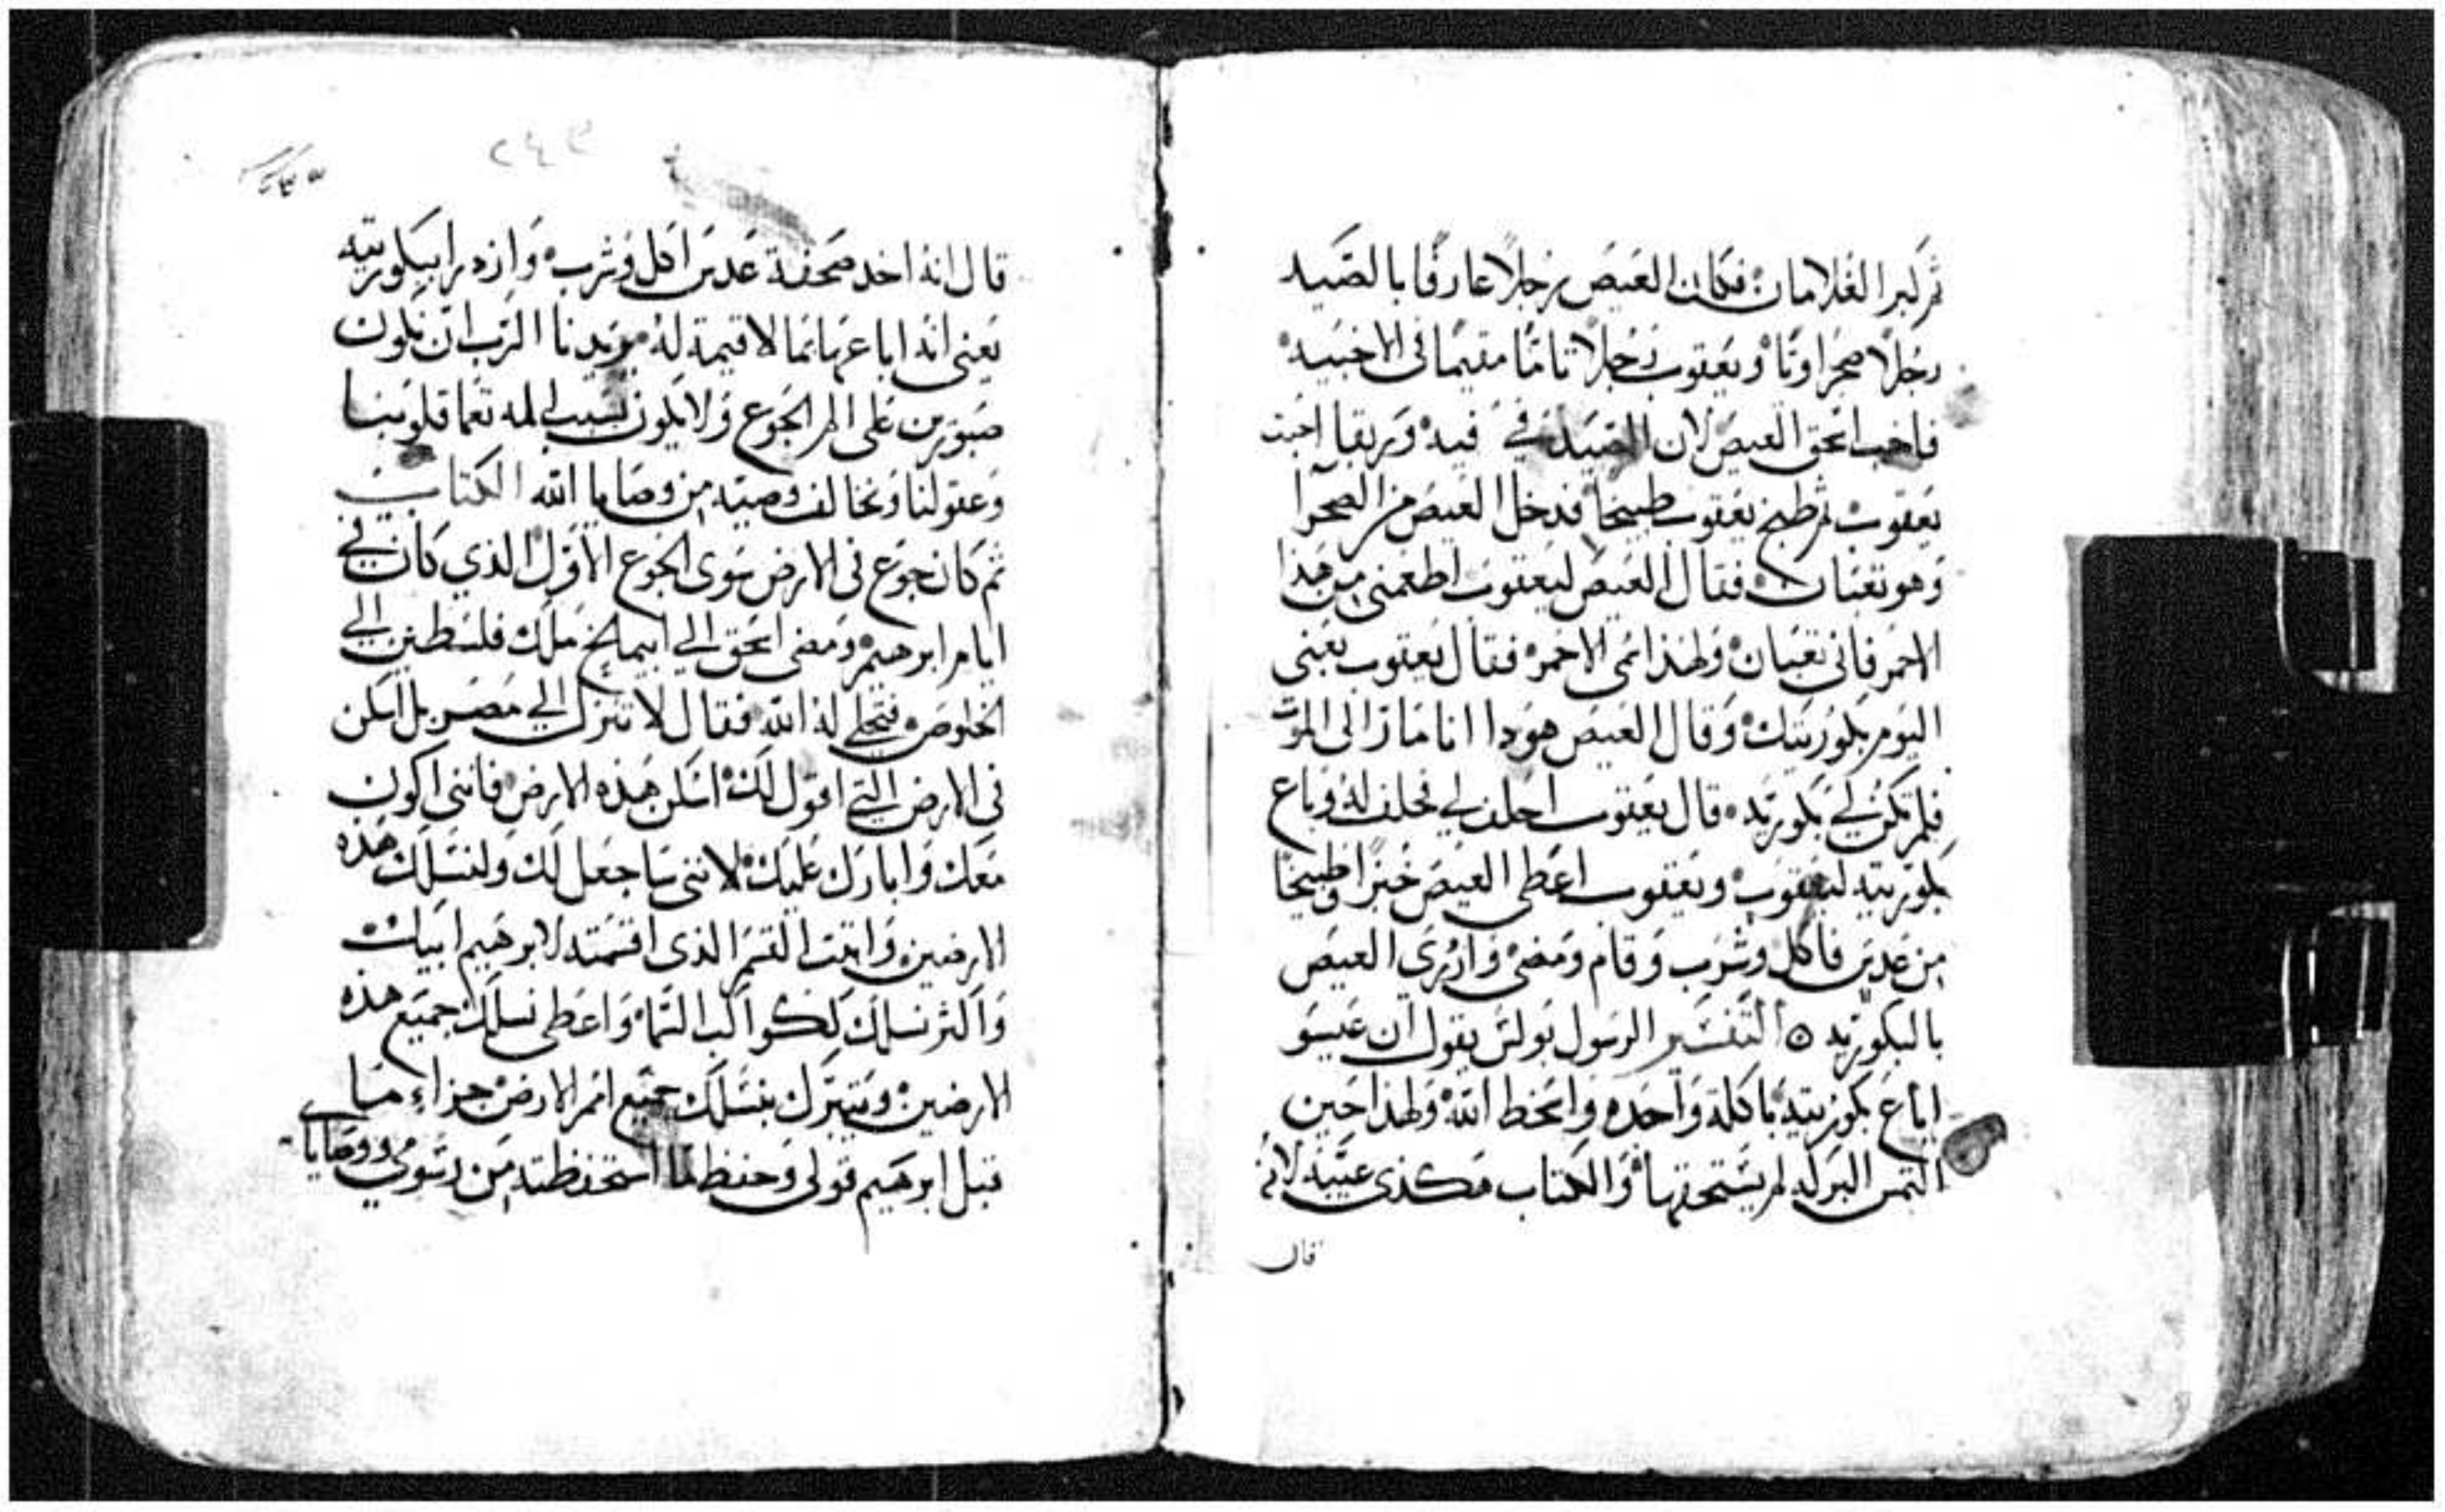 ثم كبرا الغلامان فكان العيص رجلاً عارفًا بالصَيد
رجُلاً صحراويًا ويعقوب رَجلاً تامًا مقيمًا فى الاخبيه
فاحب اسحق العيص لان الصَيد في فيه وَربقا احبت
يَعقوب ثم طبخ يَعقوب طبيخًا فدخل العيص من الصحرا
وَهو تعبان فقال العيص ليعقوب اطعمنى من هَذا
الاحمر فانى تعبان وَلهذا سمى الاحمر فقال يَعقوب بعنى
اليَوم بكوريتك وَقال العيص هوذا انا مَاز الى الموت
فلم تكن لي بكوريَه قال يَعقوب احلف لي فحلف لهُ وَباع
بكوريته ليعقوب ويَعقوب اعَطى العيص خبزًا وَطبيخًا
من عدس فاكل وشرب وَقام وَمضى وَازدرى العيص
بالبكوريه ⵔ التَفسَير الرسول بَولس يقول ان عيسَو
اباع بكوريته باكلة وَاحده وَاسخط الله وَلهذا حَين
التمس البركه لم يسَتحقها وَالكتاب هَكذى عيّبه لانهُ
قال
٢٤٩
قال انهُ اخد صحفة عَدس اكل وَشرب وَازدرا ببكوريته
يَعنى انهُ اباعهَا بمَا لا قيمة لهُ يريدنا الرَب ان نكون
صَبورين على الم الجَوع وَلا يكون بسَبب المه تعَما قلوَبنا
وَعقولنا وَنخالف وصيه من وصَايا الله الكتاب
ثم كان جوَع فى الارض سَوى الجَوع الاوَل الذي كان في
ايام ابرهيم وَمضى اسَحق الي ابيمالخ مَلك فلسَطين الي
الخلوص فتجلي لهُ الله فقال لا تنزل الي مَصر بل اسكن
فى الارض التي اقول لكَ اسكن هَذه الارض فاننى اكون
مَعك وَابارك عَليك لاننى سَاجعل لك وَلنسَلك هذه
الارضين وَاثبت القسَم الذى اقسَمته لابرهَيم ابيك
وَاكثر نسلك ككواكب السَما وَاعَطى نسلك جميَع هذه
الارضين وَيتبَرك بنسَلك جميَع امم الارض جزاء مَا
قبل ابرهَيم قولى وَحفظ لما استحفظته من رسَومي ووصَاياى